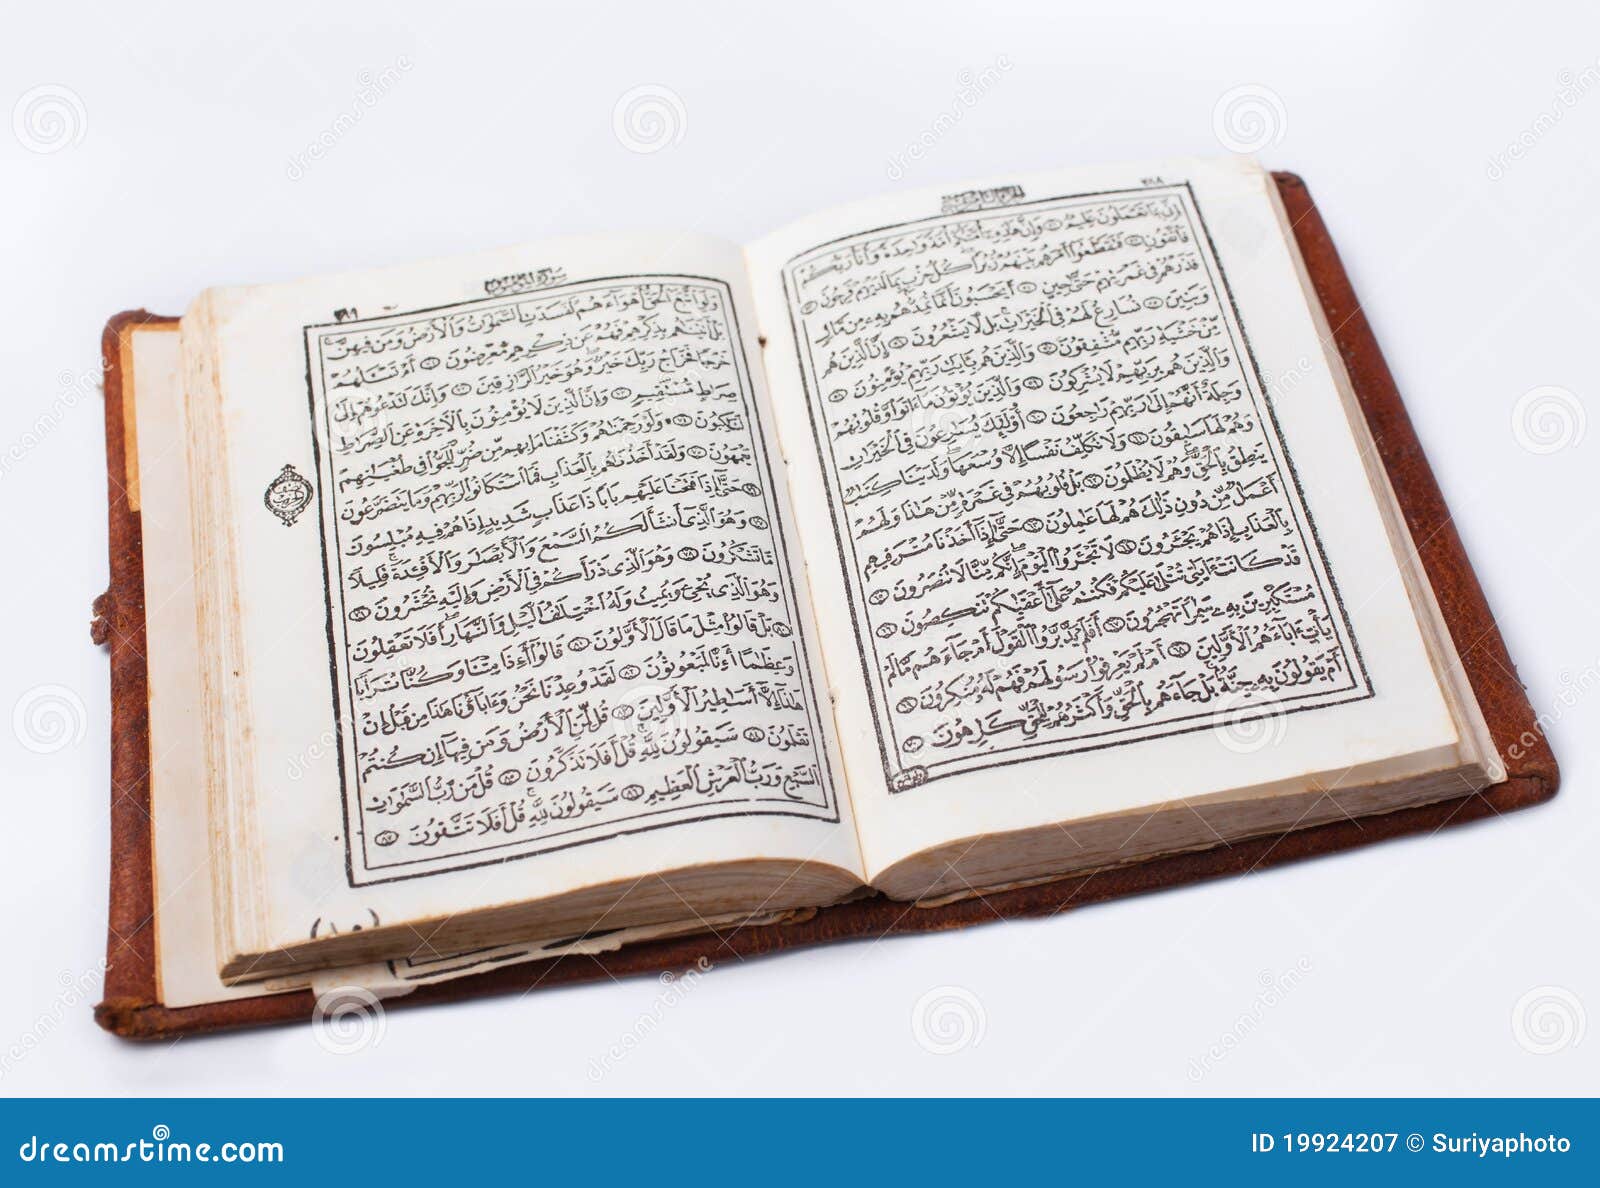 إِنِّي بِمَا تَعْمَلُونَ عَلِيمٌ ٥١ وَإِنَّ هَٰذِهِ أُمَّتُكُمْ أُمَّةً وَاحِدَةً وَأَنَا رَبُّكُمْ
فَاتَّقُونِ ٥٢ فَتَقَطَّعُوا أَمْرَهُم بَيْنَهُمْ زُبُرًا كُلُّ حِزْبٍ بِمَا لَدَيْهِمْ فَرِحُونَ ٥٣
فَذَرْهُمْ فِي غَمْرَتِهِمْ حَتَّىٰ حِينٍ ٥٤ أَيَحْسَبُونَ أَنَّمَا نُمِدُّهُم بِهِ مِن مَّالٍ
وَبَنِينَ ٥٥ نُسَارِعُ لَهُمْ فِي الْخَيْرَاتِ بَل لَّا يَشْعُرُونَ ٥٦ إِنَّ الَّذِينَ هُم
مِّنْ خَشْيَةِ رَبِّهِم مُّشْفِقُونَ ٥٧ وَالَّذِينَ هُم بِآيَاتِ رَبِّهِمْ يُؤْمِنُونَ ٥٨
وَالَّذِينَ هُم بِرَبِّهِمْ لَا يُشْرِكُونَ ٥٩ وَالَّذِينَ يُؤْتُونَ مَا آتَوا وَّقُلُوبُهُمْ
وَجِلَةٌ أَنَّهُمْ إِلَىٰ رَبِّهِمْ رَاجِعُونَ ٦٠ أُولَٰئِكَ يُسَارِعُونَ فِي الْخَيْرَاتِ
وَهُمْ لَهَا سَابِقُونَ ٦١ وَلَا نُكَلِّفُ نَفْسًا إِلَّا وُسْعَهَا وَلَدَيْنَا كِتَابٌ
يَنطِقُ بِالْحَقِّ وَهُمْ لَا يُظْلَمُونَ ٦٢ بَلْ قُلُوبُهُمْ فِي غَمْرَةٍ مِّنْ هَٰذَا وَلَهُمْ
أَعْمَالٌ مِّن دُونِ ذَٰلِكَ هُمْ لَهَا عَامِلُونَ ٦٣ حَتَّىٰ إِذَا أَخَذْنَا مُتْرَفِيهِم
بِالْعَذَابِ إِذَا هُمْ يَجْأَرُونَ ٦٤ لَا تَجْأَرُوا الْيَوْمَ إِنَّكُم مِّنَّا لَا تُنصَرُونَ ٦٥
قَدْ كَانَتْ آيَاتِي تُتْلَىٰ عَلَيْكُمْ فَكُنتُمْ عَلَىٰ أَعْقَابِكُمْ تَنكِصُونَ ٦٦
مُسْتَكْبِرِينَ بِهِ سَامِرًا تَهْجُرُونَ ٦٧ أَفَلَمْ يَدَّبَّرُوا الْقَوْلَ أَمْ جَاءَهُم مَّا لَمْ
يَأْتِ آبَاءَهُمُ الْأَوَّلِينَ ٦٨ أَمْ لَمْ يَعْرِفُوا رَسُولَهُمْ فَهُمْ لَهُ مُنكِرُونَ ٦٩
أَمْ يَقُولُونَ بِهِ جِنَّةٌ بَلْ جَاءَهُم بِالْحَقِّ وَأَكْثَرُهُمْ لِلْحَقِّ كَارِهُونَ ٧٠
سورة المؤمنون
وَلَوِ اتَّبَعَ الْحَقُّ أَهْوَاءَهُمْ لَفَسَدَتِ السَّمَاوَاتُ وَالْأَرْضُ وَمَن فِيهِنَّ
بَلْ أَتَيْنَاهُم بِذِكْرِهِمْ فَهُمْ عَن ذِكْرِهِم مُّعْرِضُونَ ٧١ أَمْ تَسْأَلُهُمْ
خَرْجًا فَخَرَاجُ رَبِّكَ خَيْرٌ وَهُوَ خَيْرُ الرَّازِقِينَ ٧٢ وَإِنَّكَ لَتَدْعُوهُمْ إِلَىٰ
صِرَاطٍ مُّسْتَقِيمٍ ٧٣ وَإِنَّ الَّذِينَ لَا يُؤْمِنُونَ بِالْآخِرَةِ عَنِ الصِّرَاطِ
لَنَاكِبُونَ ٧٤ وَلَوْ رَحِمْنَاهُمْ وَكَشَفْنَا مَا بِهِم مِّن ضُرٍّ لَّلَجُّوا فِي طُغْيَانِهِمْ
يَعْمَهُونَ ٧٥ وَلَقَدْ أَخَذْنَاهُم بِالْعَذَابِ فَمَا اسْتَكَانُوا لِرَبِّهِمْ وَمَا يَتَضَرَّعُونَ
٧٦ حَتَّىٰ إِذَا فَتَحْنَا عَلَيْهِم بَابًا ذَا عَذَابٍ شَدِيدٍ إِذَا هُمْ فِيهِ مُبْلِسُونَ
٧٧ وَهُوَ الَّذِي أَنشَأَ لَكُمُ السَّمْعَ وَالْأَبْصَارَ وَالْأَفْئِدَةَ قَلِيلًا
مَّا تَشْكُرُونَ ٧٨ وَهُوَ الَّذِي ذَرَأَكُمْ فِي الْأَرْضِ وَإِلَيْهِ تُحْشَرُونَ ٧٩
وَهُوَ الَّذِي يُحْيِي وَيُمِيتُ وَلَهُ اخْتِلَافُ اللَّيْلِ وَالنَّهَارِ أَفَلَا تَعْقِلُونَ
٨٠ بَلْ قَالُوا مِثْلَ مَا قَالَ الْأَوَّلُونَ ٨١ قَالُوا أَإِذَا مِتْنَا وَكُنَّا تُرَابًا
وَعِظَامًا أَإِنَّا لَمَبْعُوثُونَ ٨٢ لَقَدْ وُعِدْنَا نَحْنُ وَآبَاؤُنَا هَٰذَا مِن قَبْلُ إِنْ
هَٰذَا إِلَّا أَسَاطِيرُ الْأَوَّلِينَ ٨٣ قُل لِّمَنِ الْأَرْضُ وَمَن فِيهَا إِن كُنتُمْ
تَعْلَمُونَ ٨٤ سَيَقُولُونَ لِلَّهِ قُلْ أَفَلَا تَذَكَّرُونَ ٨٥ قُلْ مَن رَّبُّ السَّمَاوَاتِ
السَّبْعِ وَرَبُّ الْعَرْشِ الْعَظِيمِ ٨٦ سَيَقُولُونَ لِلَّهِ قُلْ أَفَلَا تَتَّقُونَ ٨٧
dreamstime.com
ID 19924207 © Suriyaphoto